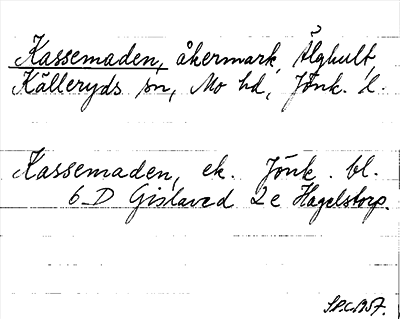 Kassemaden, åkermark, Älghult,
Källeryds sn, Mo hd, Jönk. l.
Kassemaden, ek. Jönk. bl.
6-D Gislaved 2e Hagelstorp.
1957.